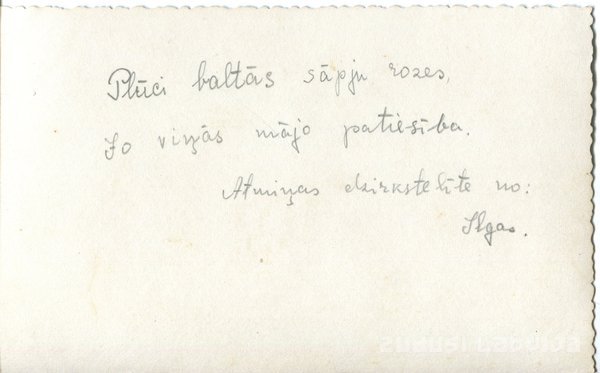 Plūci baltās sāpju rozes,
Jo viņās mājo patiesība.
Atmiņas dzirkstelīte no:
Ilgas.